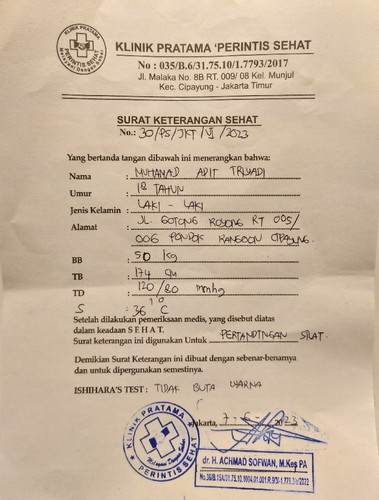 KLINIK PRATAMA 'PERINTIS SEHAT
No : 035/B.6/31.75.10/1.7793/2017
Jl. Malaka No. 8B RT. 009/ 08 Kel. Munjul
Kec. Cipayung - Jakarta Timur
SURAT KETERANGAN SEHAT
No.: 30/PS/JKT/VI/2023
Yang bertanda tangan dibawah ini menerangkan bahwa:
Nama : MUHAMAD ADIT TRIYADI
Umur : 18 TAHUN
Jenis Kelamin : LAKI - LAKI
Alamat : JL. GOTONG ROYONG RT 005/
006 PONDOK RANGGON CIPAYUNG
BB : 50 kg
TB : 174 cm
TD : 120/80 mmhg
S : 36,1°C
Setelah dilakukan pemeriksaan medis, yang disebut diatas
dalam keadaan S E H A T.
Surat keterangan ini digunakan Untuk : PERTANDINGAN SILAT.
Demikian Surat Keterangan ini dibuat dengan sebenar-benarnya
dan untuk dipergunakan semestinya.
ISHIHARA'S TEST : TIDAK BUTA WARNA
Jakarta, 7-6-2023
KLINIK PRATAMA
Melayani Dengan Hati
PERINTIS SEHAT
dr. H. ACHMAD SOFWAN, M.Kes PA